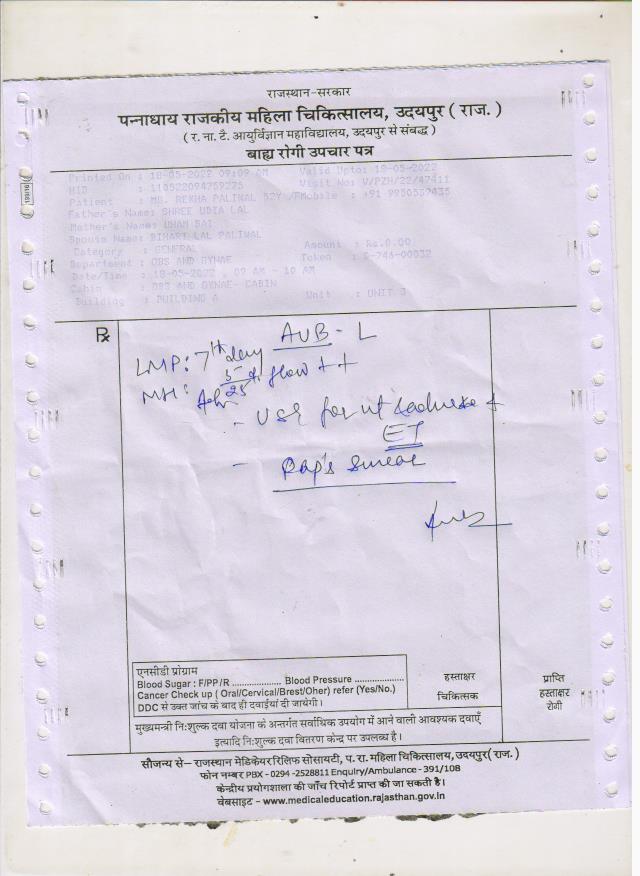 राजस्थान-सरकार
पन्नाधाय राजकीय महिला चिकित्सालय, उदयपुर ( राज. )
( र. ना. टै. आयुर्विज्ञान महाविद्यालय, उदयपुर से संबद्ध )
बाह्य रोगी उपचार पत्र
Printed On : 18-05-2022 09:09 AM Valid Upto: 18-05-2022
HID : Visit No:
Patient : MS. REKHA PALIWAL 52Y /F Mobile :
Father's Name: SHREE UDIA LAL
Mother's Name:
Spouse Name: BIHARI LAL PALIWAL
Category : GENERAL Amount : Rs.0.00
Department : OBS AND GYNAE Token :
Date/Time : 18-05-2022 , 09 AM - 10 AM
Cabin : OBS AND GYNAE- CABIN
Building : BUILDING A Unit : UNIT 3
Rx
AUB - L
LMP: 7th day
MH: 5 flow ++
25
- USG for ut &
ET
- Pap's smear
एनसीडी प्रोग्राम
Blood Sugar : F/PP/R .................... Blood Pressure ..................
Cancer Check up ( Oral/Cervical/Brest/Oher) refer (Yes/No.)
DDC से उक्त जांच के बाद ही दवाईयां दी जायेगी।
हस्ताक्षर
चिकित्सक
प्राप्ति
हस्ताक्षर
रोगी
मुख्यमन्त्री निःशुल्क दवा योजना के अन्तर्गत सर्वाधिक उपयोग में आने वाली आवश्यक दवाएँ
इत्यादि निःशुल्क दवा वितरण केन्द्र पर उपलब्ध है।
सौजन्य से- राजस्थान मेडिकेयर रिलिफ सोसायटी, प. रा. महिला चिकित्सालय, उदयपुर( राज. )
फोन नम्बर PBX - 0294 -2528811 Enquiry/Ambulance - 391/108
केन्द्रीय प्रयोगशाला की जाँच रिपोर्ट प्राप्त की जा सकती है।
वेबसाइट - www.medicaleducation.rajasthan.gov.in